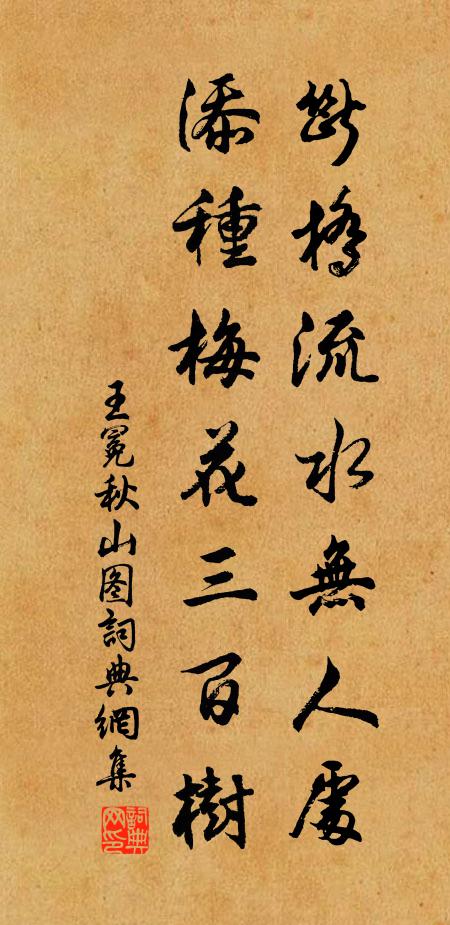 斷橋流水無人處
添種梅花三百樹
王冕秋山图詞典網集
詞典網印